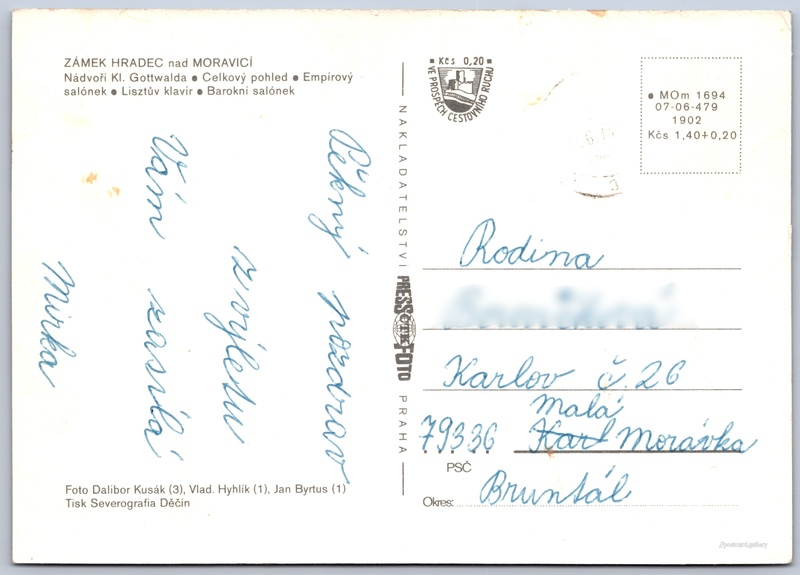 ZÁMEK HRADEC nad MORAVICÍ
Nádvoří Kl. Gottwalda ● Celkový pohled ● Empírový
salónek ● Lisztův klavír ● Barokní salónek
Pěkný pozdrav
z výletu
Vám zasílá
Mirka
Foto Dalibor Kusák (3), Vlad. Hyhlík (1), Jan Byrtus (1)
Tisk Severografia Děčín
NAKLADATELSTVÍ PRESSFOTO PRAHA
Kčs 0,20
VE PROSPĚCH CESTOVNÍHO RUCHU
● MOm 1694
07-06-479
1902
Kčs 1,40+0,20
Rodina
Karlov č. 26
Malá
79336 Karl Morávka
PSČ
Okres: Bruntál